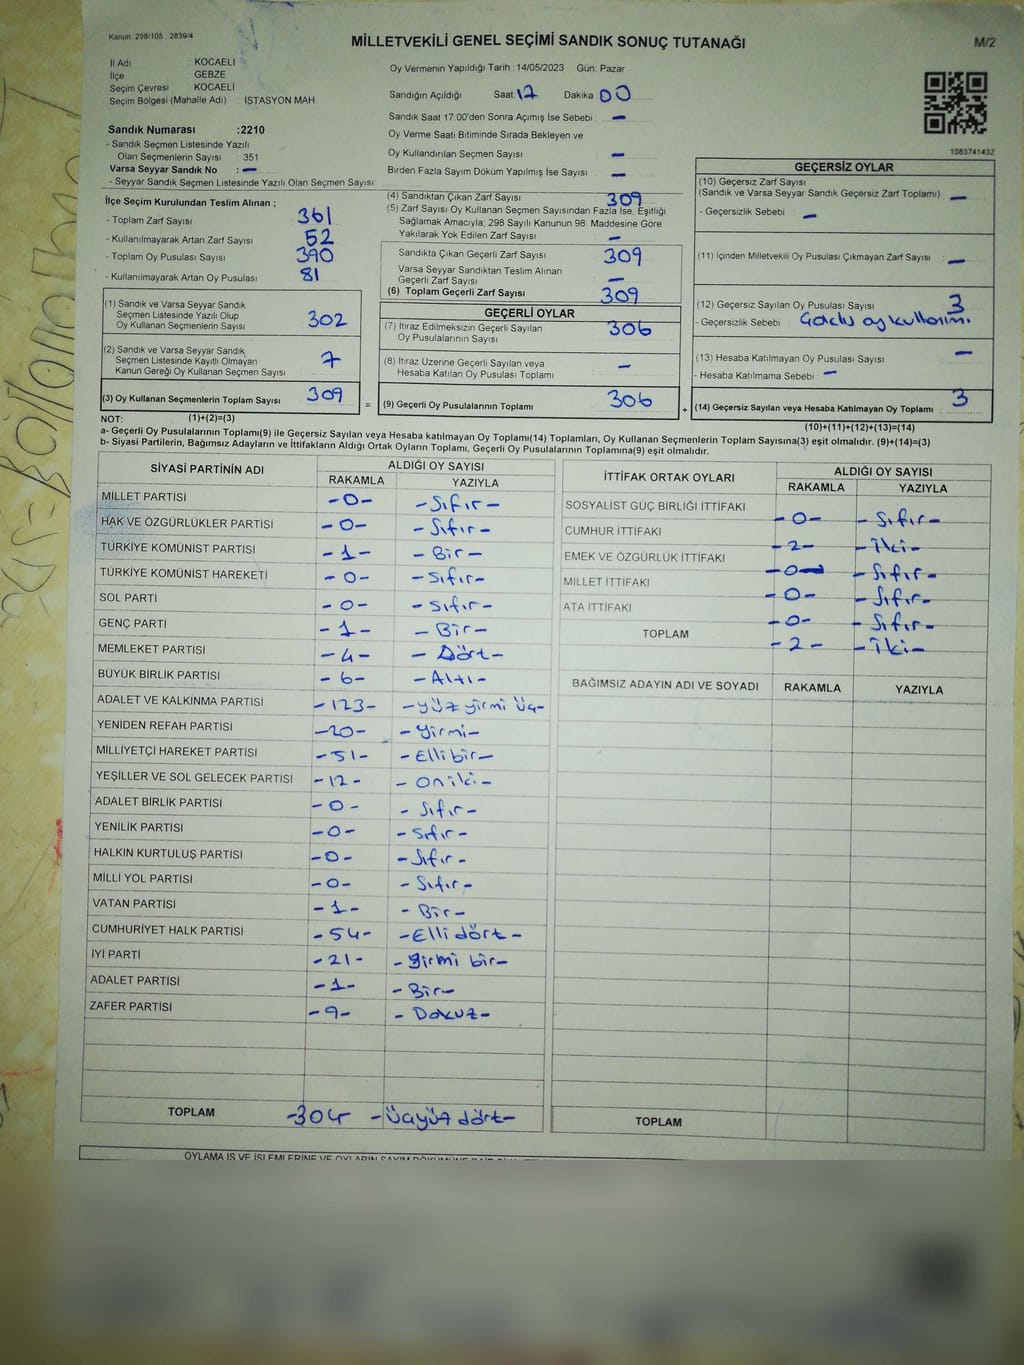 Kanun 298/105 , 2839/4
MİLLETVEKİLİ GENEL SEÇİMİ SANDIK SONUÇ TUTANAĞI
M/2
İl Adı : KOCAELİ
İlçe GEBZE
Seçim Çevresi : KOCAELİ
Seçim Bölgesi (Mahalle Adı) : İSTASYON MAH.
Sandık Numarası :2210
- Sandık Seçmen Listesinde Yazılı
Olan Seçmenlerin Sayısı : 351
Varsa Seyyar Sandık No : -
- Seyyar Sandık Seçmen Listesinde Yazılı Olan Seçmen Sayısı
Oy Vermenin Yapıldığı Tarih :14/05/2023 Gün: Pazar
Sandığın Açıldığı Saat:17 Dakika 00
Sandık Saat 17:00'den Sonra Açılmış İse Sebebi : -
Oy Verme Saati Bitiminde Sırada Bekleyen ve
Oy Kullandırılan Seçmen Sayısı -
Birden Fazla Sayım Döküm Yapılmış İse Sayısı -
1083741432
İlçe Seçim Kurulundan Teslim Alınan ;
- Toplam Zarf Sayısı 361
- Kullanılmayarak Artan Zarf Sayısı 52
- Toplam Oy Pusulası Sayısı 390
- Kullanılmayarak Artan Oy Pusulası 81
(1) Sandık ve Varsa Seyyar Sandık
Seçmen Listesinde Yazılı Olup
Oy Kullanan Seçmenlerin Sayısı 302
(2) Sandık ve Varsa Seyyar Sandık
Seçmen Listesinde Kayıtlı Olmayan
Kanun Gereği Oy Kullanan Seçmen Sayısı 7
(3) Oy Kullanan Seçmenlerin Toplam Sayısı 309
(4) Sandıktan Çıkan Zarf Sayısı 309
(5) Zarf Sayısı Oy Kullanan Seçmen Sayısından Fazla İse, Eşitliği
Sağlamak Amacıyla; 298 Sayılı Kanunun 98. Maddesine Göre
Yakılarak Yok Edilen Zarf Sayısı -
Sandıkta Çıkan Geçerli Zarf Sayısı 309
Varsa Seyyar Sandıktan Teslim Alınan
Geçerli Zarf Sayısı -
(6) Toplam Geçerli Zarf Sayısı 309
GEÇERLİ OYLAR
(7) İtiraz Edilmeksizin Geçerli Sayılan
Oy Pusulalarının Sayısı 306
(8) İtiraz Üzerine Geçerli Sayılan veya
Hesaba Katılan Oy Pusulası Toplamı -
= (9) Geçerli Oy Pusulalarının Toplamı 306
GEÇERSİZ OYLAR
(10) Geçersiz Zarf Sayısı
(Sandık ve Varsa Seyyar Sandık Geçersiz Zarf Toplamı) -
- Geçersizlik Sebebi : -
(11) İçinden Milletvekili Oy Pusulası Çıkmayan Zarf Sayısı -
(12) Geçersiz Sayılan Oy Pusulası Sayısı 3
- Geçersizlik Sebebi :
(13) Hesaba Katılmayan Oy Pusulası Sayısı -
- Hesaba Katılmama Sebebi : -
+ (14) Geçersiz Sayılan veya Hesaba Katılmayan Oy Toplamı 3
NOT: (1)+(2)=(3)
(10)+(11)+(12)+(13)=(14)
a- Geçerli Oy Pusulalarının Toplamı(9) ile Geçersiz Sayılan veya Hesaba katılmayan Oy Toplamı(14) Toplamları, Oy Kullanan Seçmenlerin Toplam Sayısına(3) eşit olmalıdır. (9)+(14)=(3)
b- Siyasi Partilerin, Bağımsız Adayların ve İttifakların Aldığı Ortak Oyların Toplamı, Geçerli Oy Pusulalarının Toplamına(9) eşit olmalıdır.
SİYASİ PARTİNİN ADI ALDIĞI OY SAYISI
RAKAMLA YAZIYLA
MİLLET PARTİSİ -0- -Sıfır-
HAK VE ÖZGÜRLÜKLER PARTİSİ -0- -Sıfır-
TÜRKİYE KOMÜNİST PARTİSİ -1- -Bir-
TÜRKİYE KOMÜNİST HAREKETİ -0- -Sıfır-
SOL PARTİ -0- -Sıfır-
GENÇ PARTİ -1- -Bir-
MEMLEKET PARTİSİ -4- -Dört-
BÜYÜK BİRLİK PARTİSİ -6- -Altı-
ADALET VE KALKINMA PARTİSİ -123- -yüz yirmi üç-
YENİDEN REFAH PARTİSİ -20- -yirmi-
MİLLİYETÇİ HAREKET PARTİSİ -51- -Ellibir-
YEŞİLLER VE SOL GELECEK PARTİSİ -12- -oniki-
ADALET BİRLİK PARTİSİ -0- -Sıfır-
YENİLİK PARTİSİ -0- -Sıfır-
HALKIN KURTULUŞ PARTİSİ -0- -Sıfır-
MİLLİ YOL PARTİSİ -0- -Sıfır-
VATAN PARTİSİ -1- -Bir-
CUMHURİYET HALK PARTİSİ -54- -Elli dört-
İYİ PARTİ -21- -yirmi bir-
ADALET PARTİSİ -1- -Bir-
ZAFER PARTİSİ -9- -Dokuz-
TOPLAM -304 -üçyüz dört-
İTTİFAK ORTAK OYLARI ALDIĞI OY SAYISI
RAKAMLA YAZIYLA
SOSYALİST GÜÇ BİRLİĞİ İTTİFAKI -0- -Sıfır-
CUMHUR İTTİFAKI -2- -İki-
EMEK VE ÖZGÜRLÜK İTTİFAKI -0- -Sıfır-
MİLLET İTTİFAKI -0- -Sıfır-
ATA İTTİFAKI -0- -Sıfır-
TOPLAM -2- -İki-
BAĞIMSIZ ADAYIN ADI VE SOYADI RAKAMLA YAZIYLA
TOPLAM